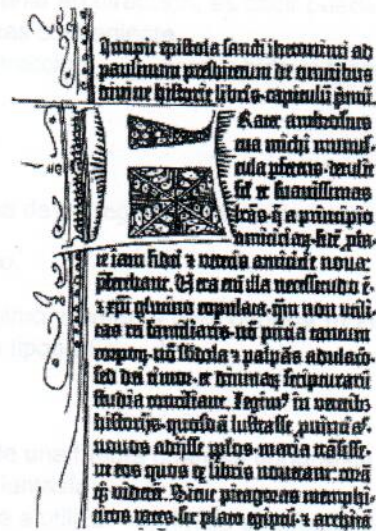 Incipit epistola sancti iheronimi ad
paulinum presbiterum de omnibus
divine historie libris·capitulū pmū
Frater ambrosius
tua michi munus-
cula pferens·detulit
sił et suavissimas
lrās·q̄ a principio
amiciciaꝝ·fidē pba-
te iam fidei ⁊ veteris amicicie nova
pferebant. Vera eni illa necessitudo ē·
⁊ xpi glutino copulata·qm non vtili-
tas rei familiaris·nō pntia tantum
corpoꝝ·nō sbdola ⁊ palpās adulacō·
sed dei timor·et divinaꝝ scripturarū
studia conciliant. Legim⁹ in veterib⁹
historijs·quosdā lustrasse puincias·
novos adijsse pplos·maria trāsisse·
ut eos quos ex libris noverant: corā
q̄ viderēt. Sicut pitagoras memphi-
ticos vates·sic plato egiptū·⁊ architā